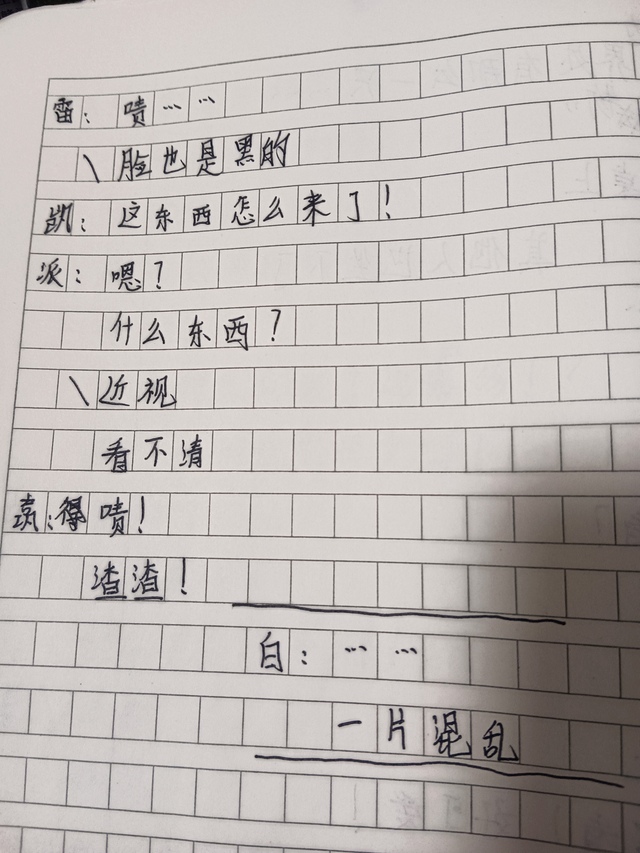 雷：啧……
\脸也是黑的
凯：这东西怎么来了！
派：嗯？
什么东西？
\近视
看不清
得啧！
渣渣！
白：……
一片混乱